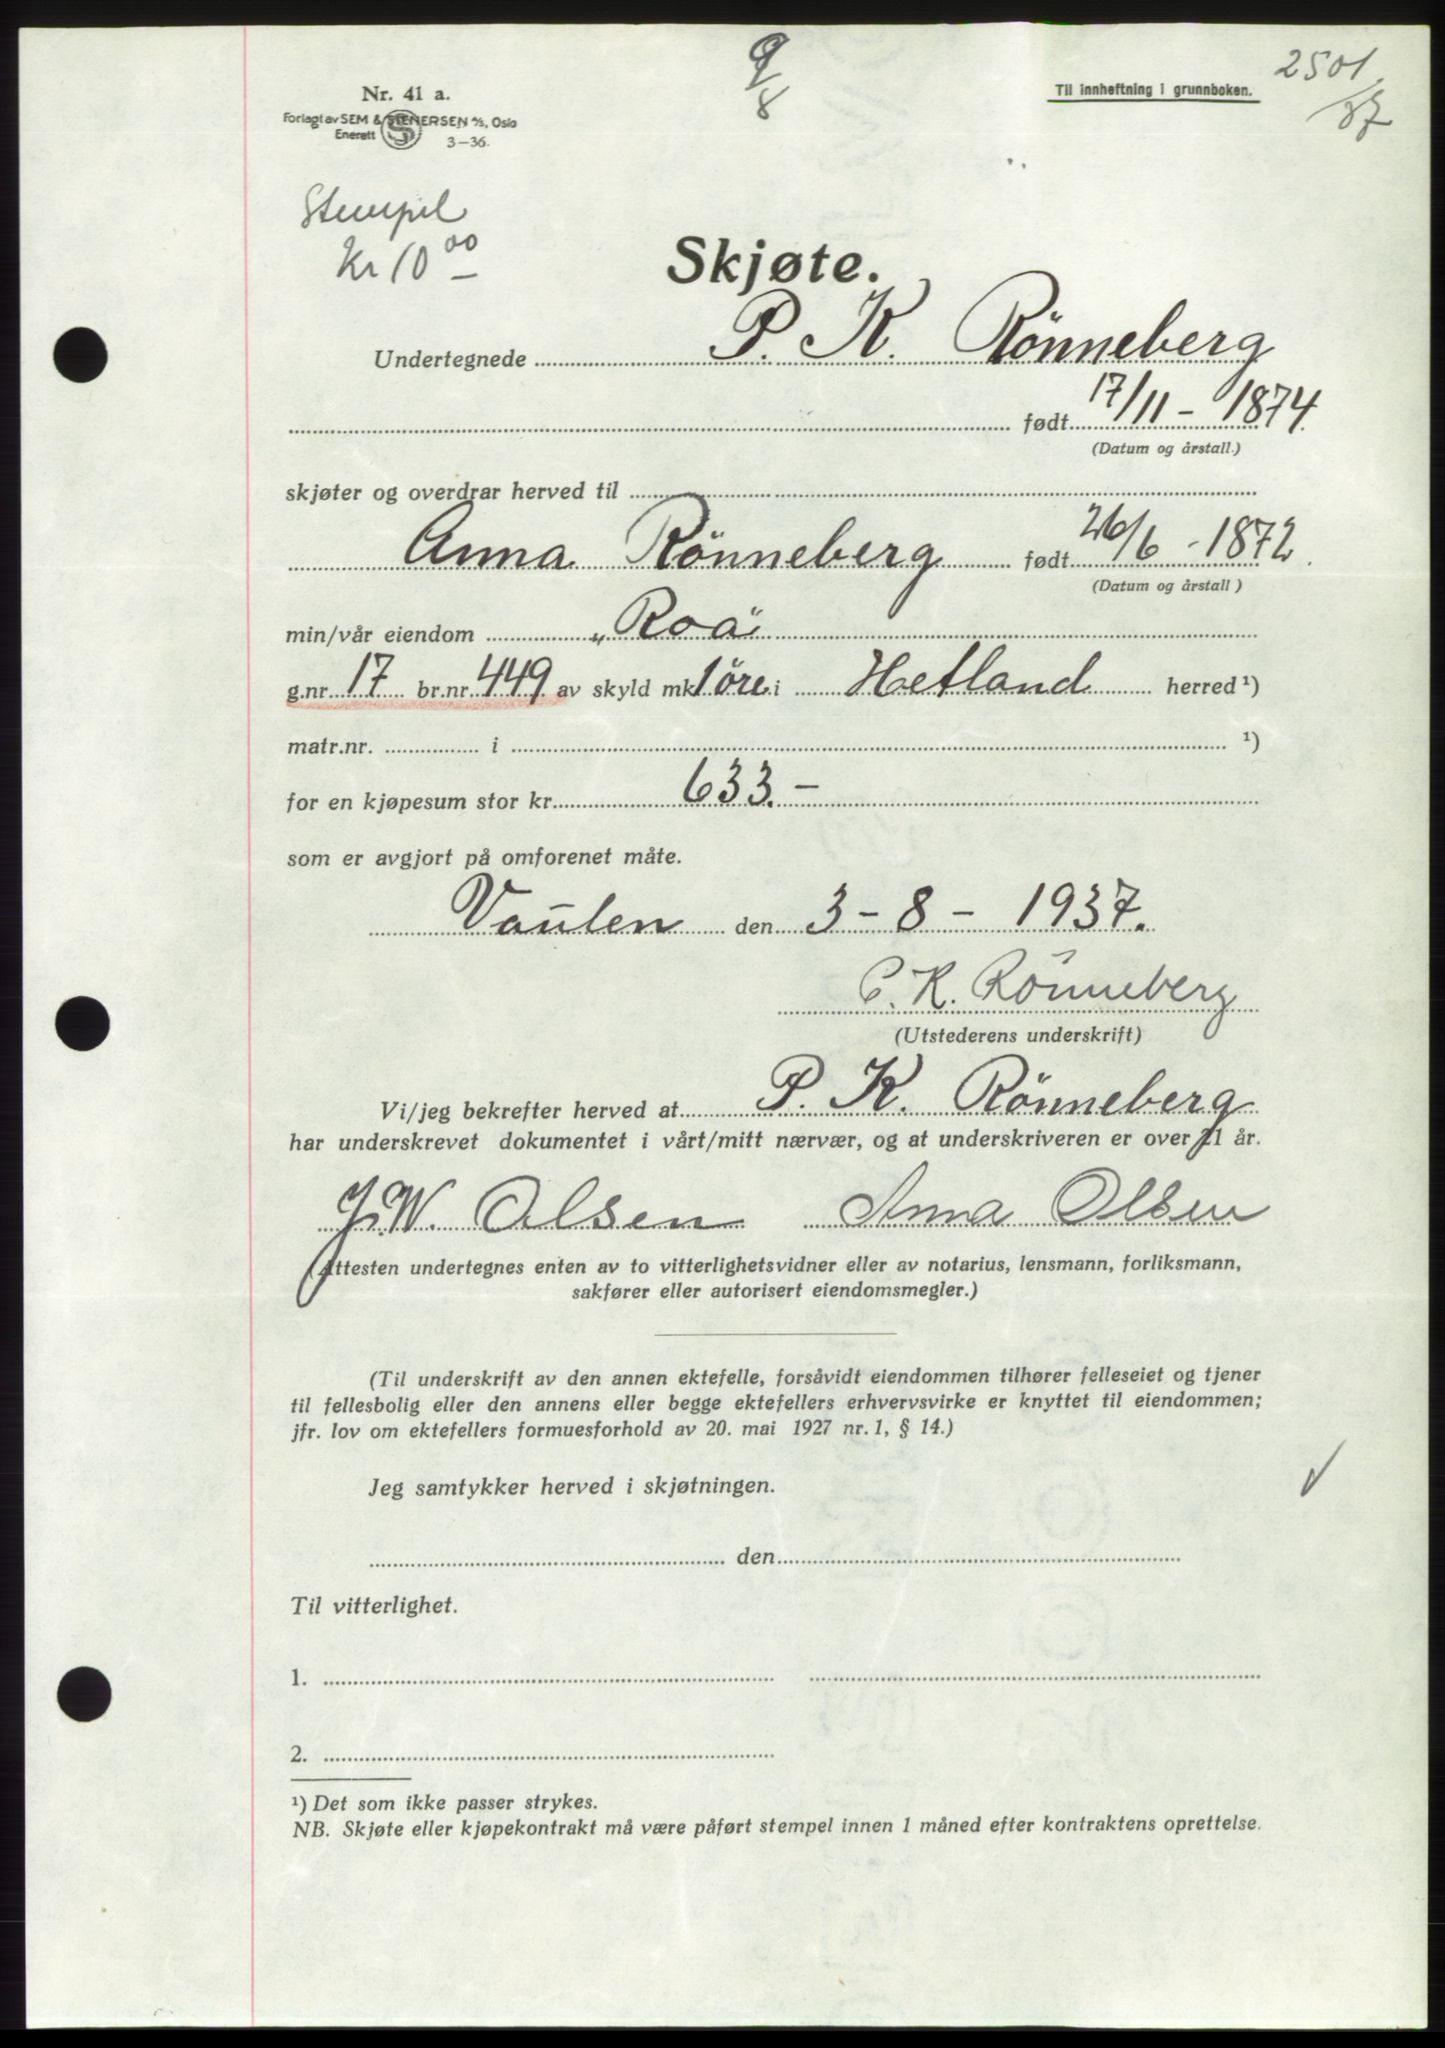 9/8
2501/37
Nr. 41 a.
Forlagt av SEM & STENERSEN A/S, Oslo
Enerett
3—36.
Til innheftning i grunnboken.
Stempel
Kr 10 00
Skjøte.
Undertegnede P. K. Rönneberg
født 17/11 - 1874.
(Datum og årstall.)
skjøter og overdrar herved til
Anna Rönneberg født 26/6 - 1872.
(Datum og årstall)
min/vår eiendom „Roa"
g.nr. 17 br.nr. 449 av skyld mk 1 öre i Hetland herred ¹)
matr.nr. i ¹)
for en kjøpesum stor kr. 633.-
som er avgjort på omforenet måte.
Vaulen den 3 - 8 - 1937.
P. K. Rönneberg
(Utstederens underskrift)
Vi/jeg bekrefter herved at P. K. Rönneberg
har underskrevet dokumentet i vårt/mitt nærvær, og at underskriveren er over 21 år.
J. W. Olsen Anna Olsen
(Attesten undertegnes enten av to vitterlighetsvidner eller av notarius, lensmann, forliksmann,
sakfører eller autorisert eiendomsmegler.)
(Til underskrift av den annen ektefelle, forsåvidt eiendommen tilhører felleseiet og tjener
til fellesbolig eller den annens eller begge ektefellers erhvervsvirke er knyttet til eiendommen;
jfr. lov om ektefellers formuesforhold av 20. mai 1927 nr. 1, § 14.)
Jeg samtykker herved i skjøtningen.
den
Til vitterlighet.
1.
2.
¹) Det som ikke passer strykes.
NB. Skjøte eller kjøpekontrakt må være påført stempel innen 1 måned efter kontraktens oprettelse.